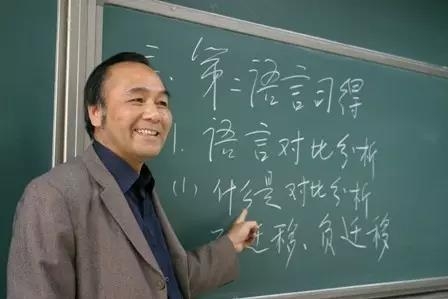 三、第二语言习得
1. 语言对比分析
(1) 什么是对比分析
迁移、负迁移